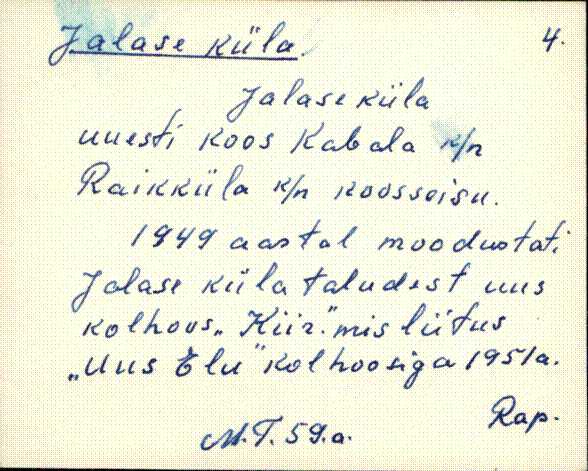 Jalase küla. 4.
Jalase küla
uuesti koos Kabala k/n
Raikküla k/n koosseisu.
1949 aastal moodustati
Jalase küla taludest uus
kolhoos „Kiir." mis liitus
„Uus Elu" kolhoosiga 1951a.
Rap.
M.T. 59.a.